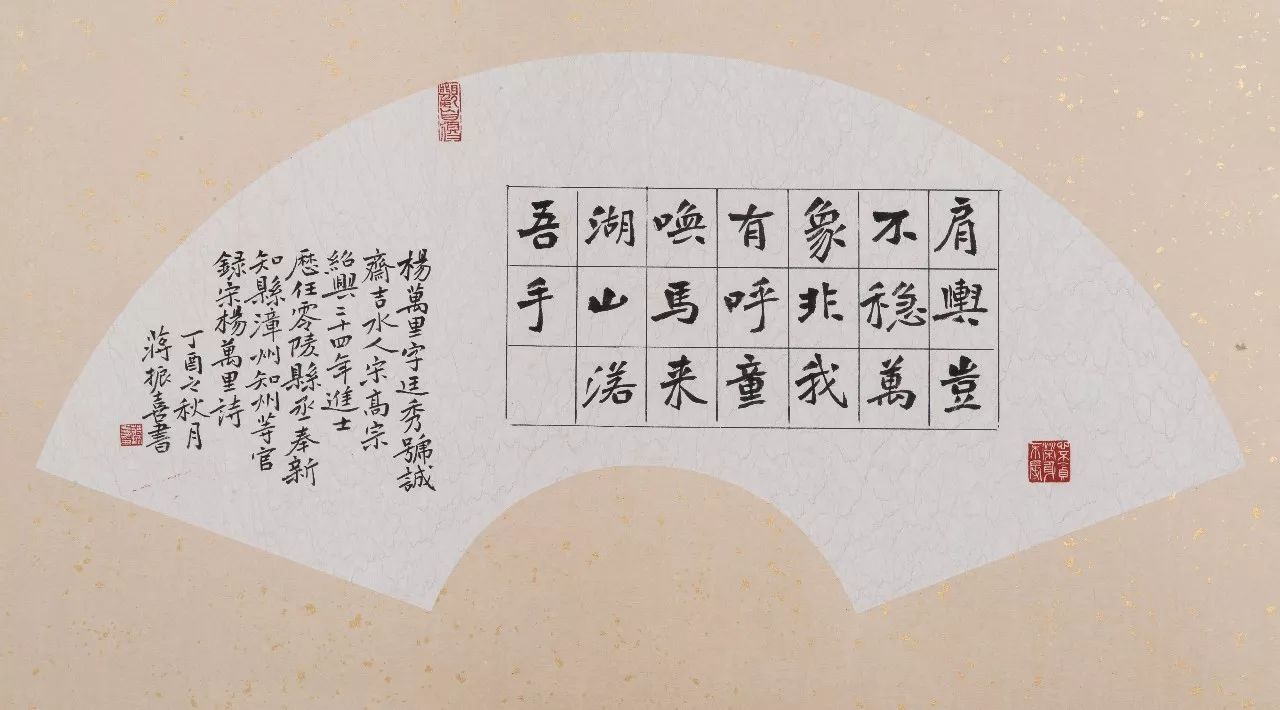 肩輿豈
不稳萬
象非我
有呼童
喚馬来
湖山落
吾手
楊萬里字廷秀號誠
齋吉水人宋高宗
紹興二十四年進士
歷任零陵縣丞奉新
知縣漳州知州等官
録宋楊萬里詩
丁酉之秋月
蔣振喜書